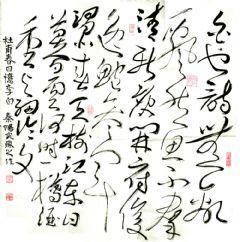 白也詩無敵
飄然思不群
清新庾開府俊
逸鮑參軍
渭北春天樹江東日
暮雲何時一樽酒
重與細論文
杜甫春日憶李白